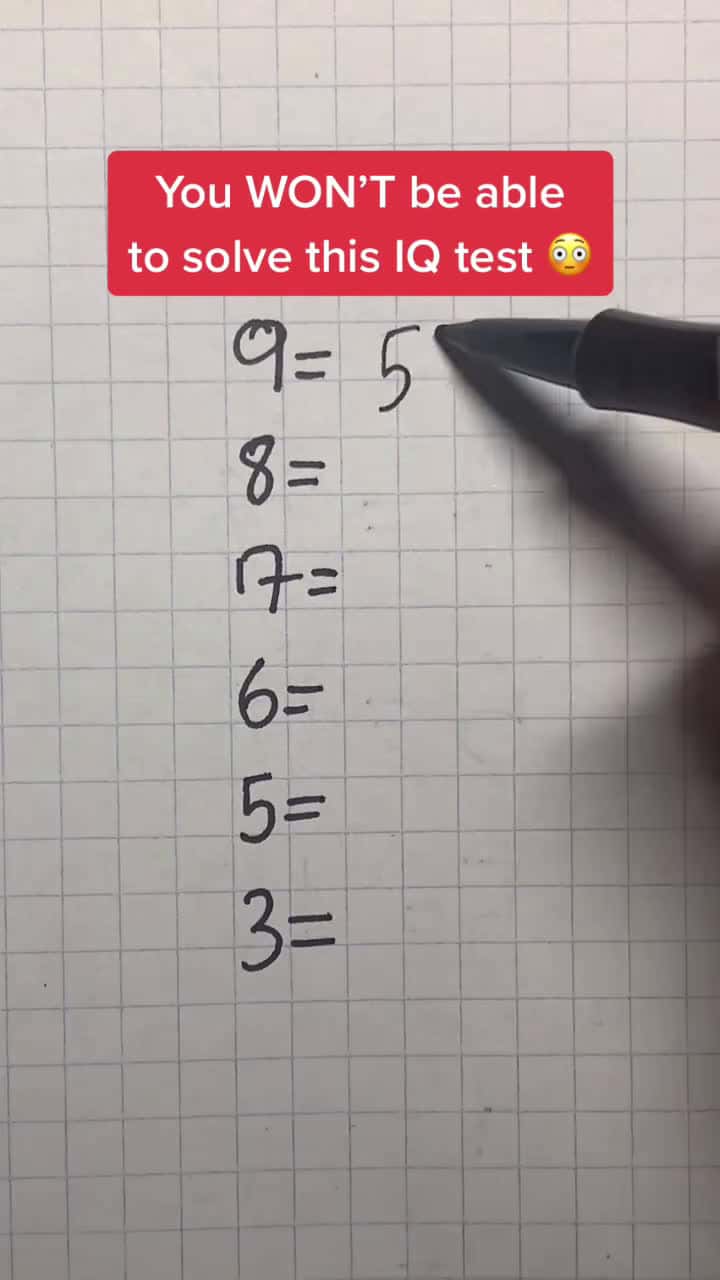 You WON'T be able
to solve this IQ test 😳
9= 5
8=
7=
6=
5=
3=